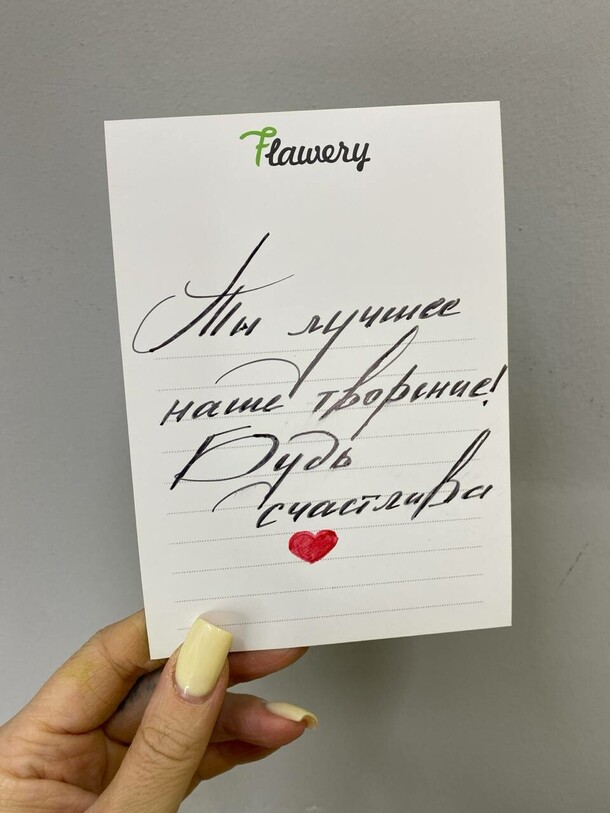 Flawery
Ты лучшее
наше творение!
Будь
счастлива